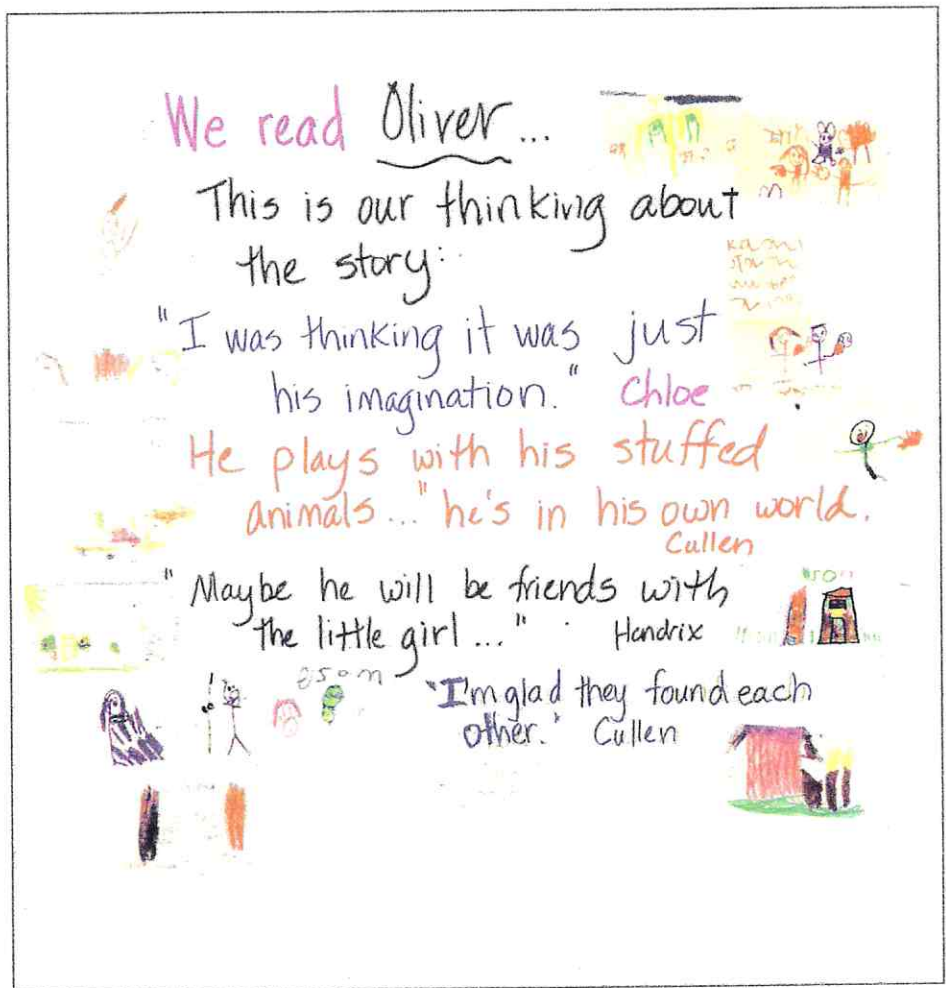 We read Oliver...
This is our thinking about
the story:
"I was thinking it was just
his imagination." Chloe
He plays with his stuffed
animals..." he's in his own world.
Cullen
"Maybe he will be friends with
the little girl..." Hendrix
"I'm glad they found each
other." Cullen